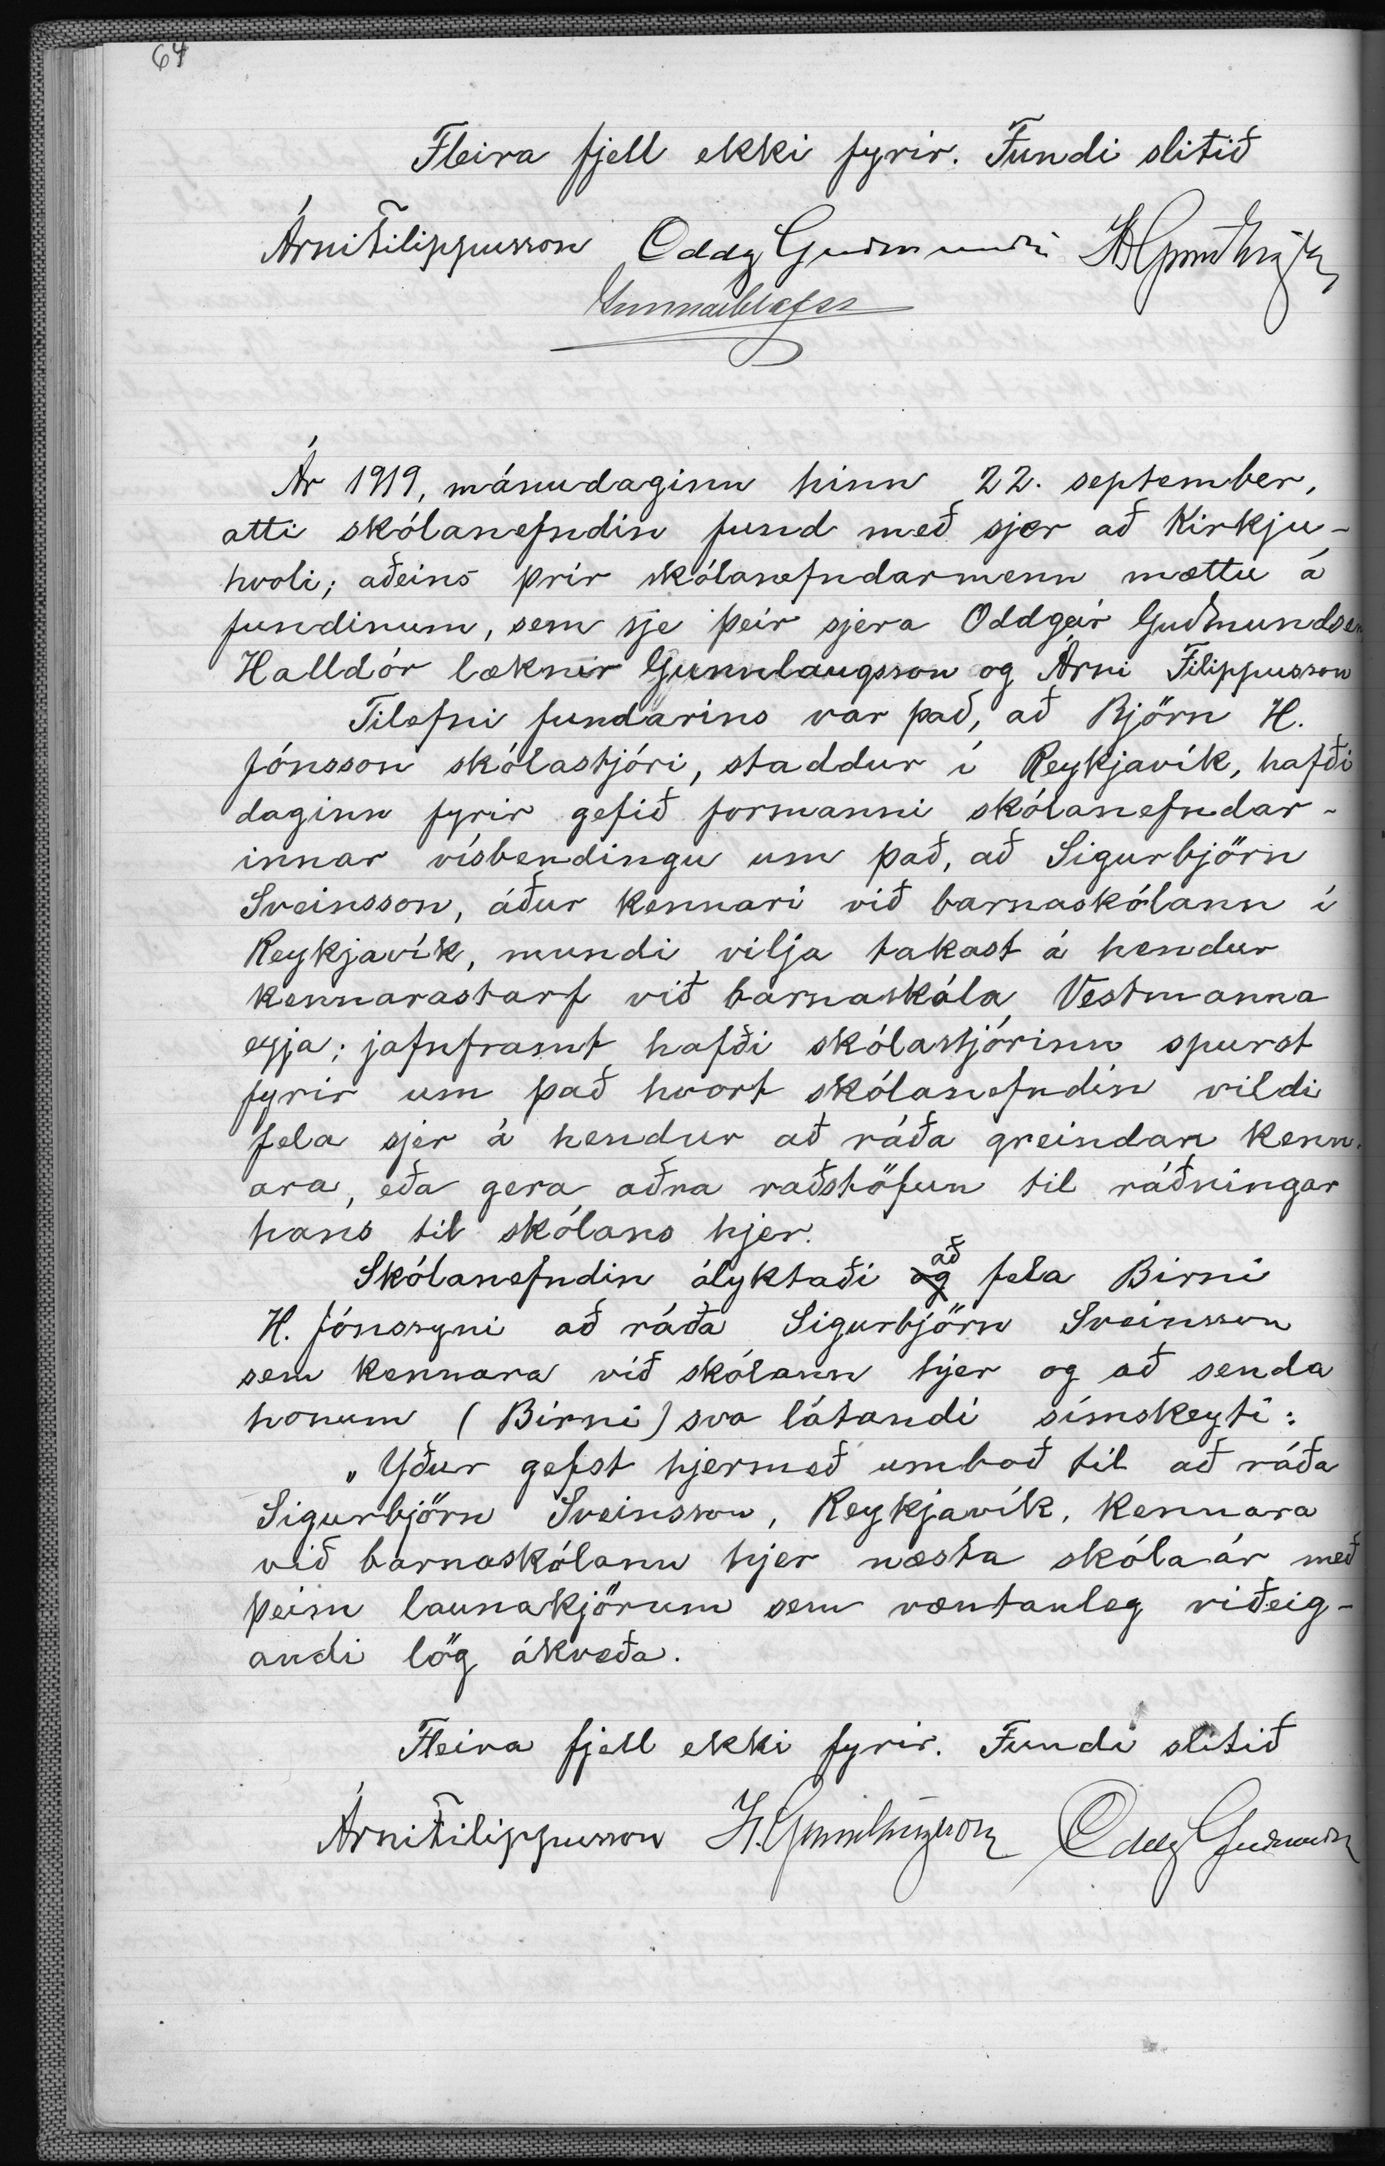 64
Fleira fjell ekki fyrir. Fundi slitið
Árni Filippusson Oddg Guðmunds
Gunnar Ólafss
Ár 1919, mánudaginn hinn 22. september,
atti skólanefndin fund með sjer að Kirkju-
hvoli; aðeins þrír skólanefndarmenn mættu á
fundinum, sem sje þeir sjera Oddgeir Guðmundsen
Halldór læknir Gunnlaugsson og Árni Filippusson
Tilefni fundarins var það, að Björn H.
Jónsson skólastjóri, staddur í Reykjavík, hafði
daginn fyrir gefið formanni skólanefndar-
innar vísbendingu um það, að Sigurbjörn
Sveinsson, áður kennari við barnaskólann í
Reykjavík, mundi vilja takast á hendur
kennarastarf við barnaskóla Vestmanna
eyja; jafnframt hafði skólastjórinn spurst
fyrir um það hvort skólanefndin vildi
fela sjer á hendur að ráða greindan kenn-
ara, eða gera aðra raðstöfun til ráðningar
hans til skólans hjer.
Skólanefndin ályktaði og að fela Birni
H. Jónssyni að ráða Sigurbjörn Sveinsson
sem kennara við skólann hjer og að senda
honum (Birni) sva látandi símskeyti:
„Yður gefst hjermeð umboð til að ráða
Sigurbjörn Sveinsson, Reykjavík, kennara
við barnaskólann hjer næsta skólaár með
þeim launakjörum sem væntanleg viðeig-
andi lög ákveða.
Fleira fjell ekki fyrir. Fundi slitið
Árni Filippusson H. Gunnlaugsson Oddg Guðmunds